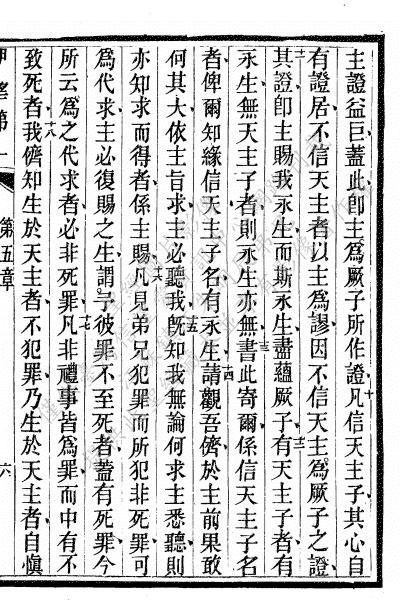 主證益巨蓋此卽主爲厥子所作證十凡信天主子其心自
有證居不信天主者以主爲謬因不信天主爲厥子之證
十一其證卽主賜我永生而斯永生盡蘊厥子十二有天主子者有
永生無天主子者則永生亦無十三書此寄爾係信天主子名
者俾爾知緣信天主子名有永生十四請觀吾儕於主前果敢
何其大依主旨求主必聽我十五旣知我無論何求主悉聽則
亦知求而得者係主賜十六凡見弟兄犯罪而所犯非死罪可
爲代求主必復賜之生謂予彼罪不至死者蓋有死罪今
所云爲之代求者必非死罪十七凡非禮事皆爲罪而中有不
致死者十八我儕知生於天主者不犯罪乃生於天主者自愼
第五章
六